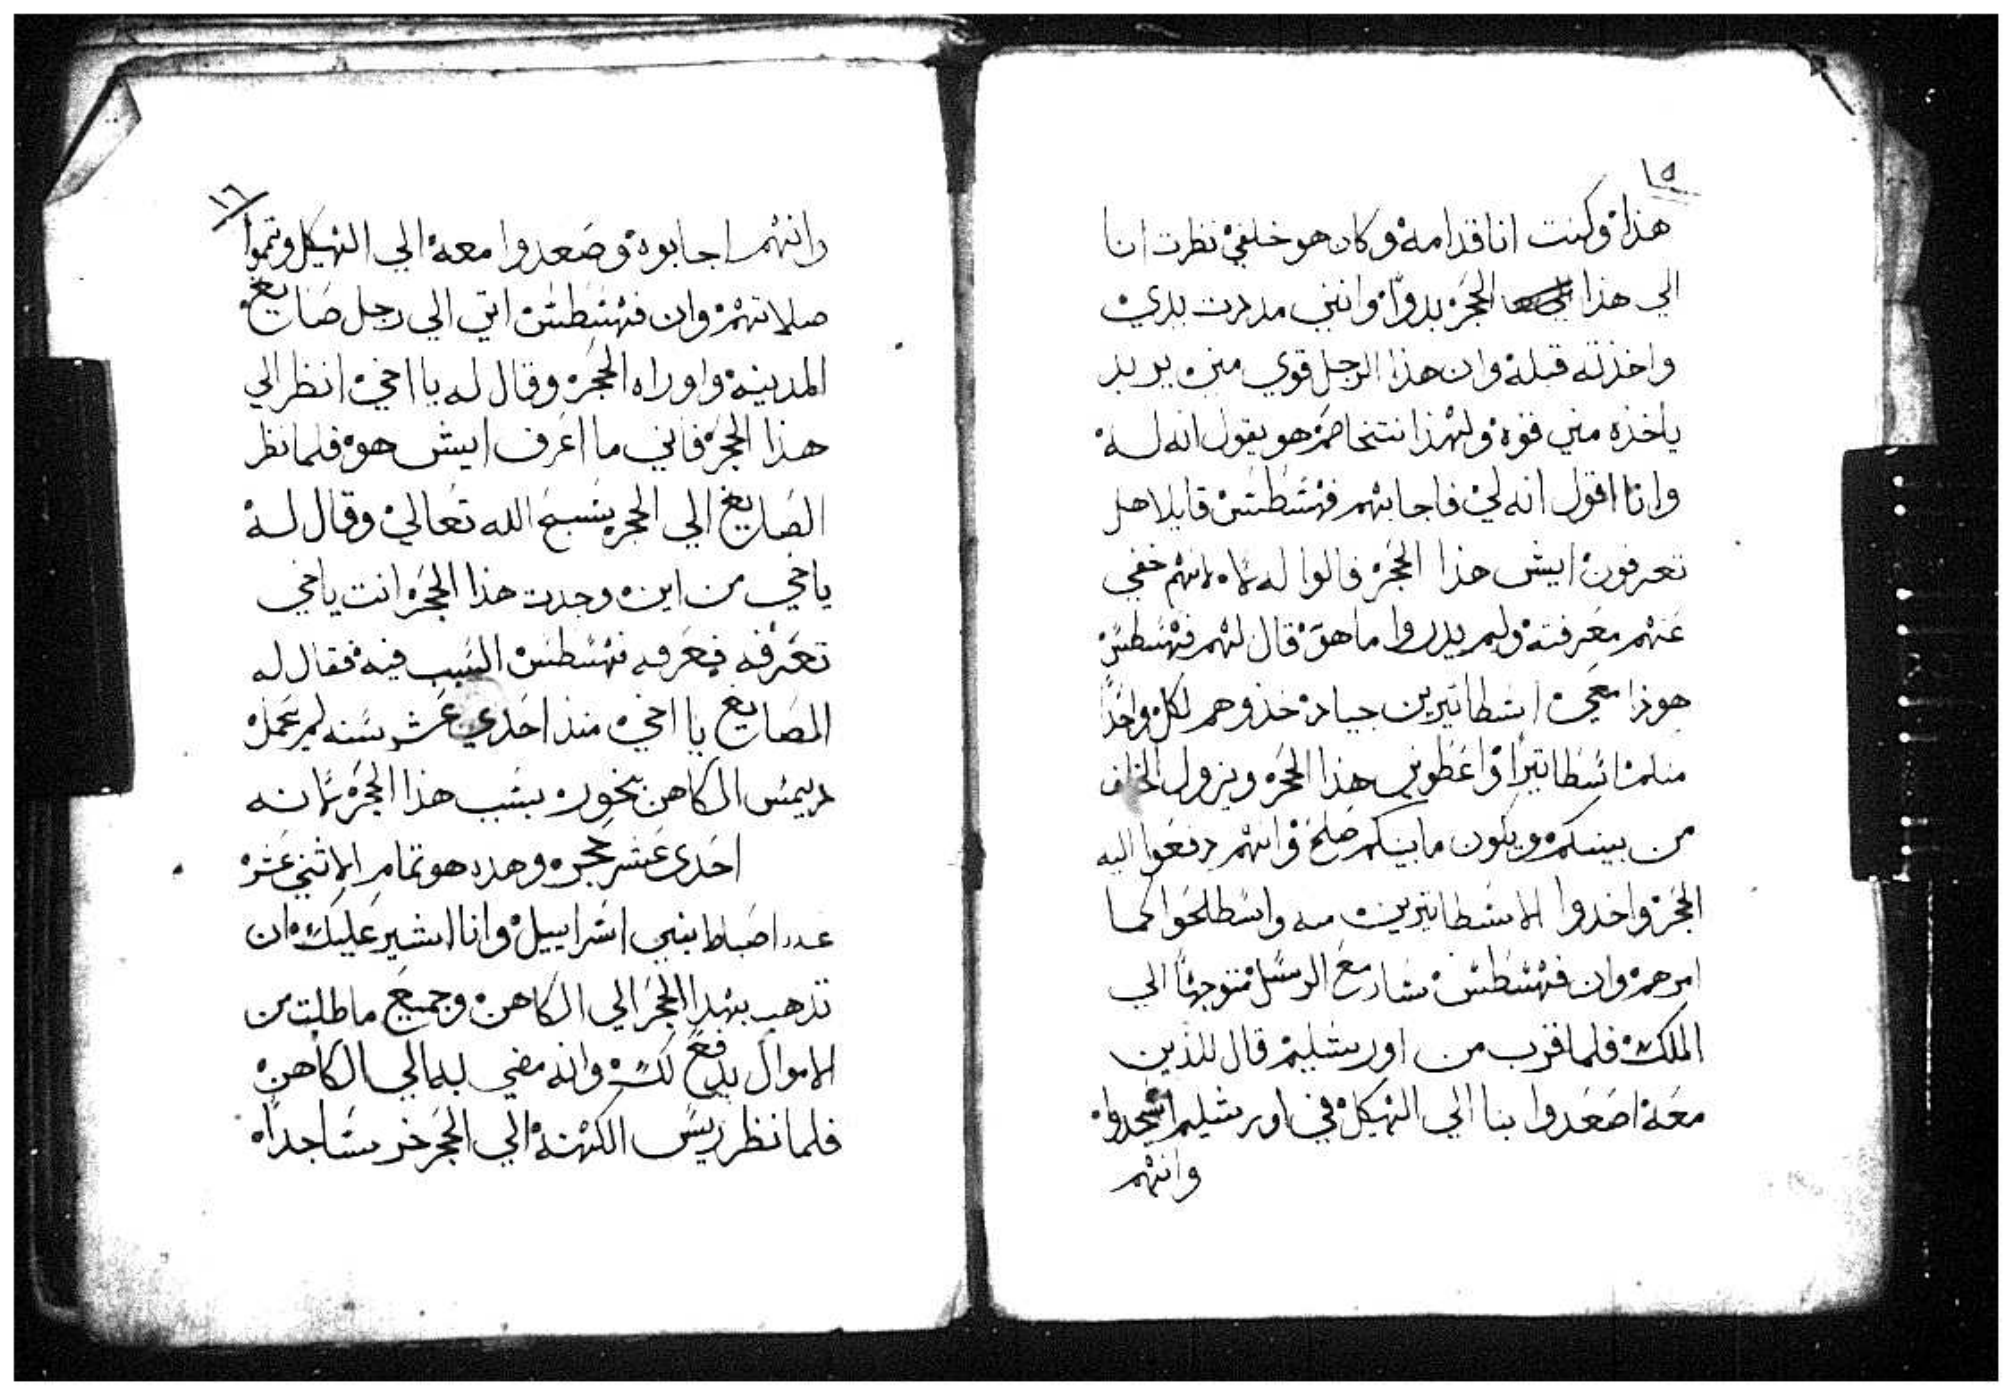 ١٥
هذا وكنت انا قدامه وكان هو خلفي نظرت انا
الي هذا الحجر بدوا وانني مددت يدي
واخذته قبله وان هذا الرجل قوي مني يريد
ياخذه مني قوه ولهذا نتخاصم هو يقول انه له
وانا اقول انه لي فاجابهم فهسطس قايلا هل
تعرفون ايش هذا الحجر فالوا له لا لانهم خفي
عنهم معرفته ولم يدروا ما هو قال لهم فهسطس
هوذا معي اسطاتيرين جياد خذوهم لكل واحدا
منكم اسطاتيرا واعطوني هذا الحجر ويزول الخلف
من بينكم ويكون ما بينكم صلح وانهم دفعوا اليه
الحجر واخدوا الاسطاتيرين منه واسطلحوا كما
امرهم وان فهسطس سار مع الرسل متوجها الي
الملك فلما قرب من اورشليم قال للذين
معه اصعدوا بنا الي الهيكل في اورشليم اسجدوا
وانهم
١٦
وانهم اجابوه وصعدوا معه الي الهيكل وتموا
صلاتهم وان فهسطس اتي الي رجل صايغ
المدينه واوراه الحجر وقال له يا اخي انظر الي
هذا الحجر فاني ما اعرف ايش هو فلما نظر
الصايغ الي الحجر يسبح الله تعالي وقال له
ياخي من اين وجدت هذا الحجر انت ياخي
تعرفه فعرفه فهسطس السبب فيه فقال له
الصايغ يا اخي منذ احدي عشر سنه لم عمل
دييمس الكاهن بخور بسبب هذا الحجر لانه
احدي عشر حجر وهده هو تمام الاثني عشر
عدد اصباط بني اسراييل وانا اشير عليك ان
تذهب بهدا الحجر الي الكاهن وجميع ما طلبت من
الاموال يدفع لك وانه مضي به الي الكاهن
فلما نظر ريس الكهنه الي الحجر خر ساجدا